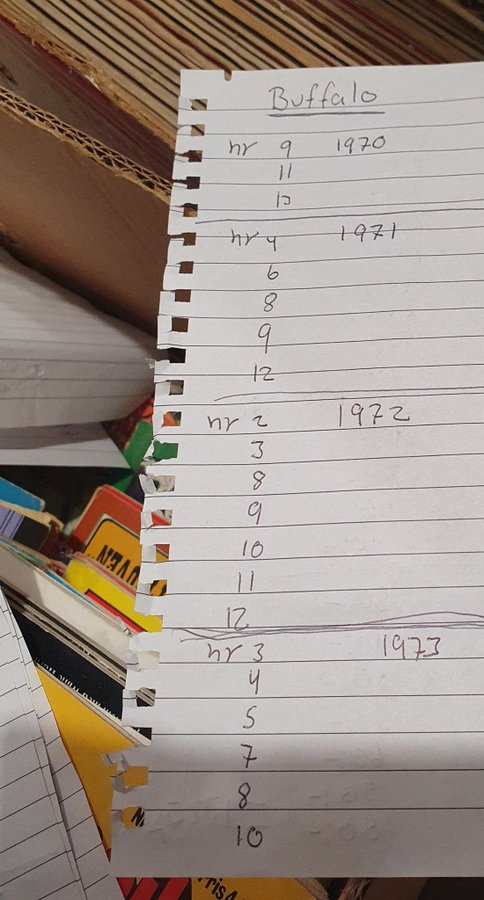 Buffalo
nr 9 1970
11
nr 4 1971
6
8
9
12
nr 2 1972
3
8
9
10
11
12
nr 3 1973
4
5
7
8
10
UVEN